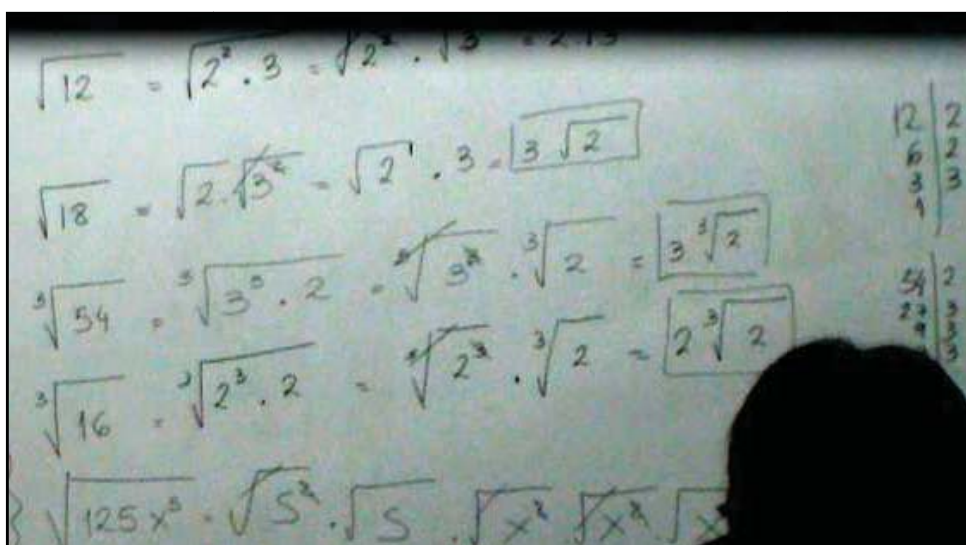 √12 = √2² · 3 = √2² · √3 = 2 · √3
√18 = √2 · √3² = √2 · 3 = 3 √2
³√54 = ³√3³ · 2 = ³√3³ · ³√2 = 3 ³√2
³√16 = ³√2³ · 2 = ³√2³ · ³√2 = 2 ³√2
√125x⁵ = √5² · √5 · √x² √x² · √x
12 | 2
6 | 2
3 | 3
1
54 | 2
27 | 3
9 | 3
3